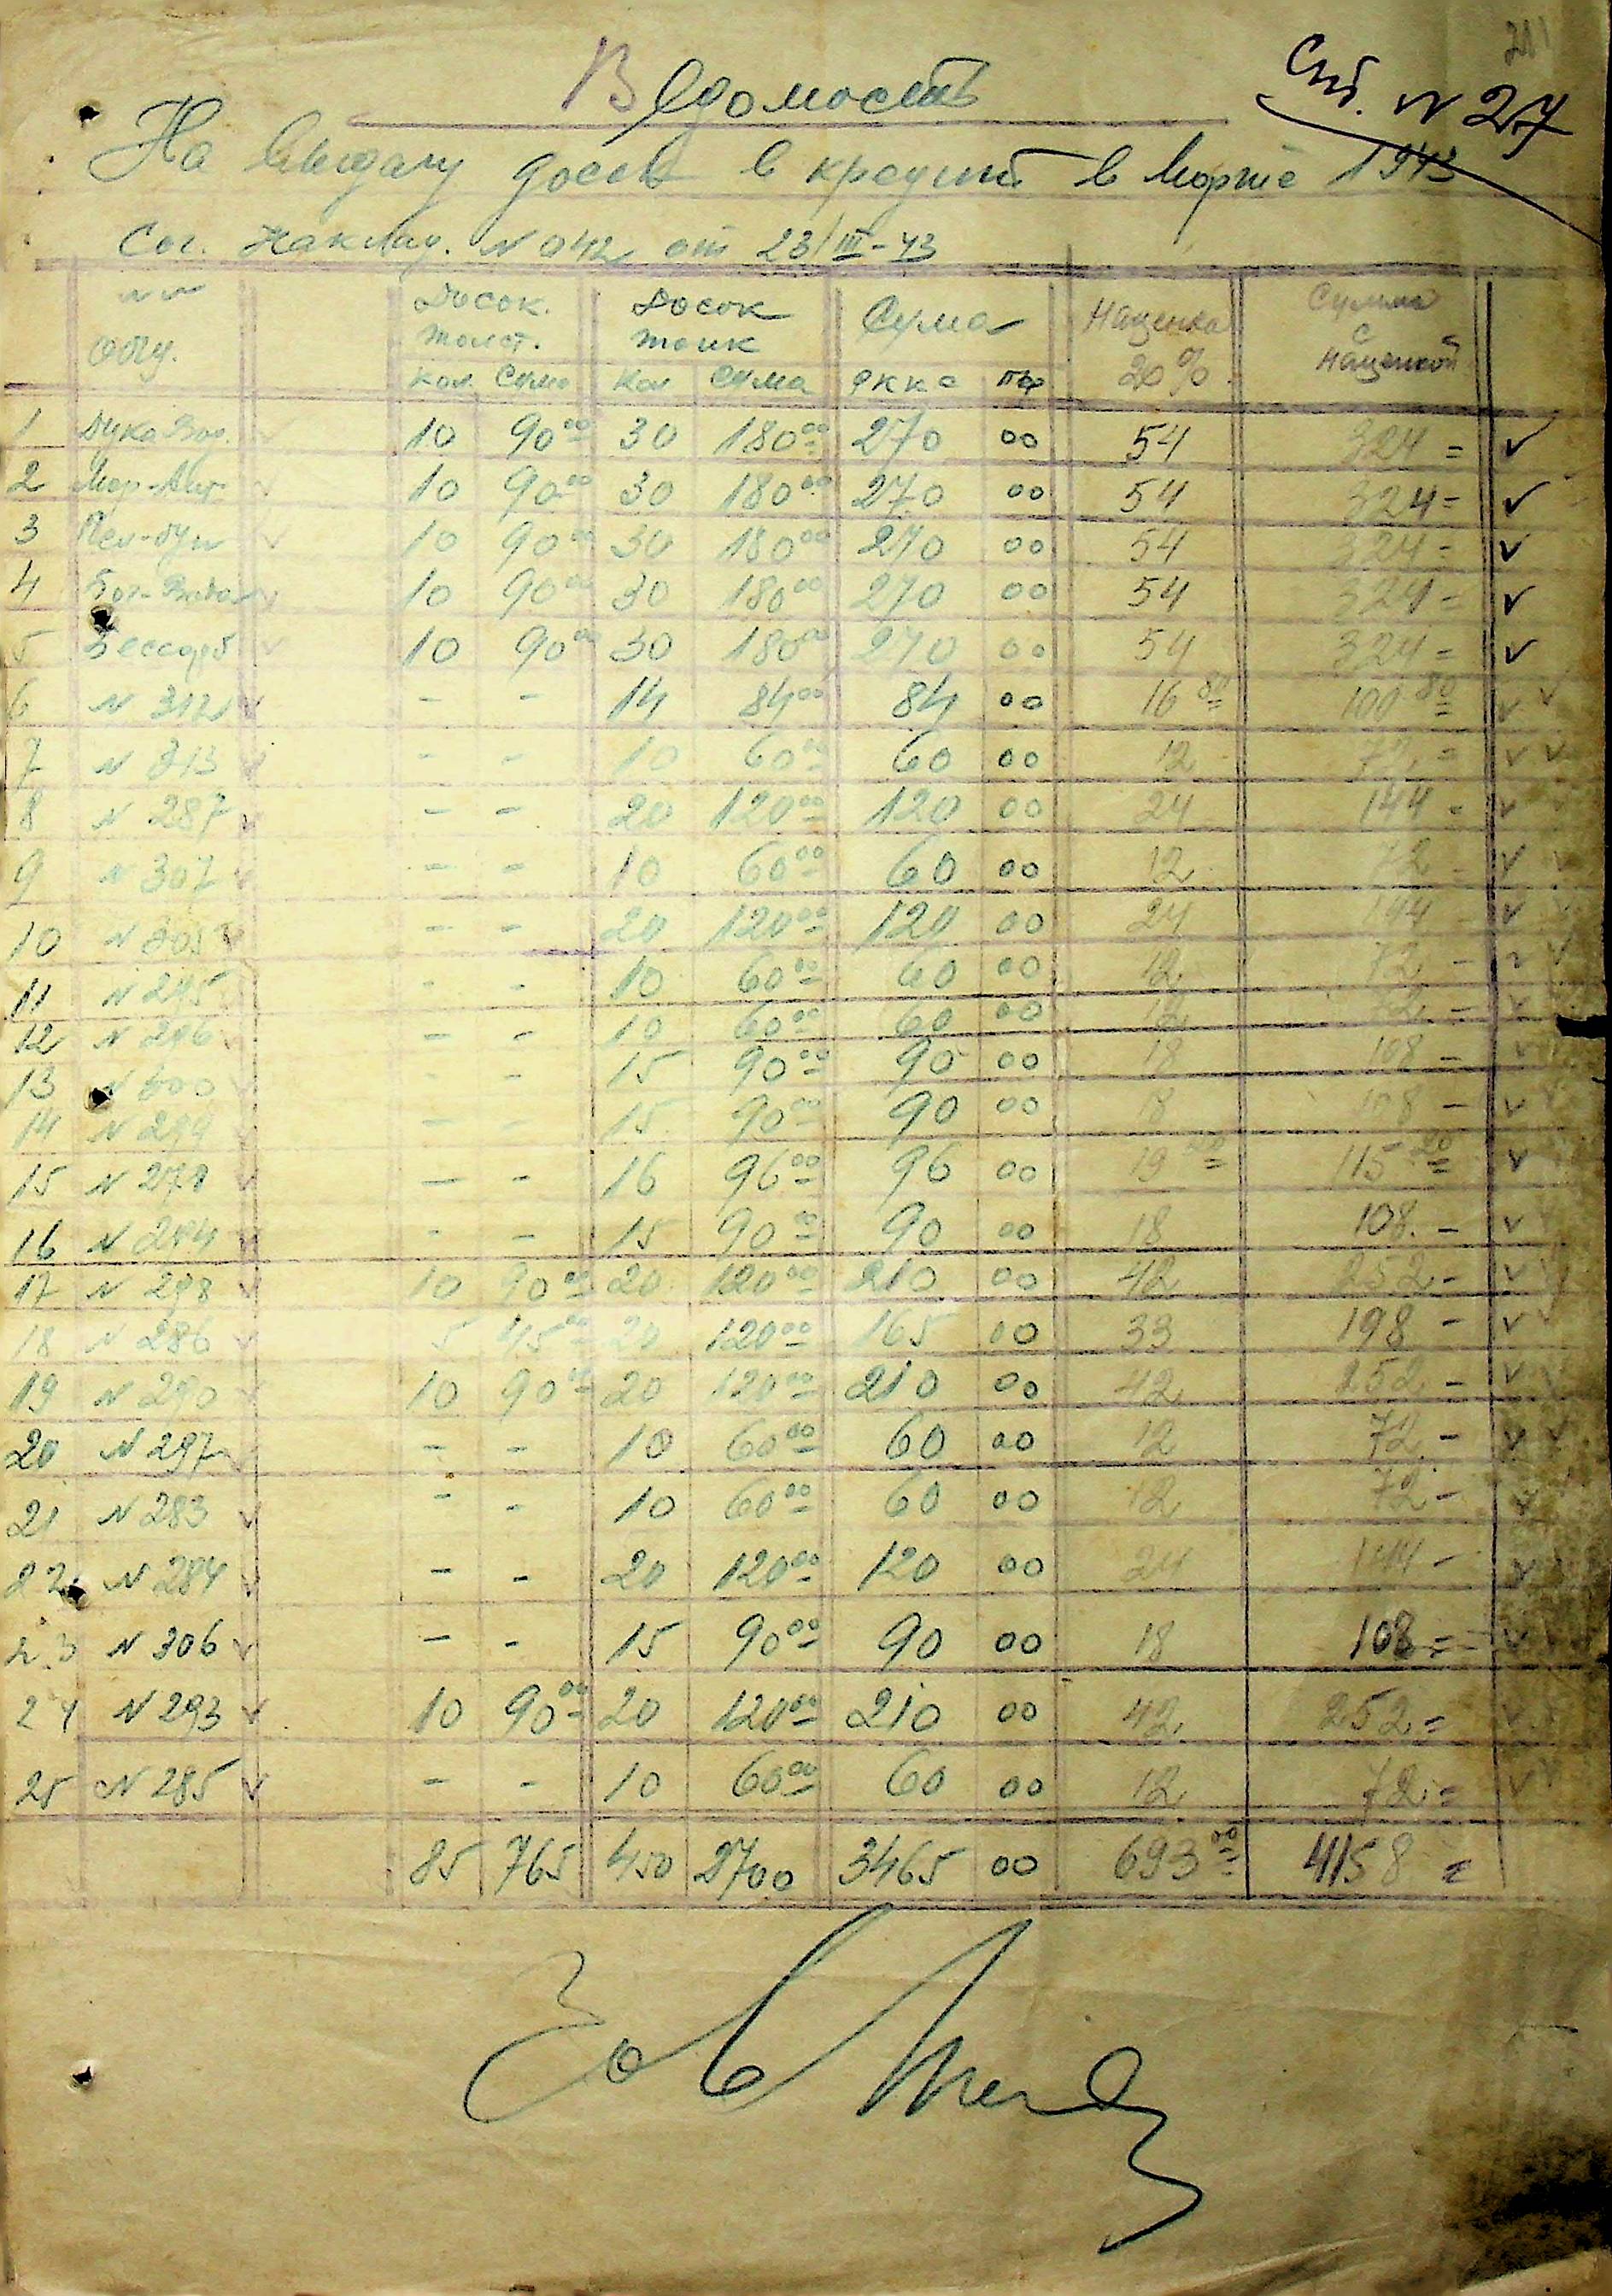 Ведомость
На выдачу досок в кредит в марте 1943
N 27
Сог. Наклад. N 042 от 23/III-43
NN общ. Досок. толст. Досок тонк Сума Наценка 20% Сумма с наценкой
Кол. Сума Кол Сума
1 10 90 00 30 180 00 270 00 54 324 = ✓
2 10 90 00 30 180 00 270 00 54 324 = ✓
3 10 90 00 30 180 00 270 00 54 324 = ✓
4 10 90 00 30 180 00 270 00 54 324 = ✓
5 Бессараб 10 90 00 30 180 00 270 00 54 324 = ✓
6 N 312 ✓ - - 14 84 00 84 00 16 80 100 80 ✓ ✓
7 N 313 ✓ - - 10 60 00 60 00 12 72 = ✓ ✓
8 N 287 ✓ - - 20 120 00 120 00 24 144 - ✓
9 N 307 ✓ - - 10 60 00 60 00 12 72 - ✓
10 N 305 ✓ - - 20 120 00 120 00 24 144 - ✓
11 N 295 - - 10 60 00 60 00 12 72 - ✓
12 N 296 - - 10 60 00 60 00 12 72 - ✓
13 N 300 - - 15 90 00 90 00 18 108 - ✓
14 N 299 ✓ - - 15 90 00 90 00 18 108 - ✓
15 N 278 ✓ - - 16 96 00 96 00 19 20 115 20 ✓
16 N 294 ✓ - - 15 90 00 90 00 18 108. - ✓
17 N 298 ✓ 10 90 00 20 120 00 210 00 42 252 - ✓
18 N 286 ✓ 5 45 00 20 120 00 165 00 33 198 - ✓
19 N 290 ✓ 10 90 00 20 120 00 210 00 42 252 - ✓
20 N 297 - - 10 60 00 60 00 12 72 - ✓
21 N 283 ✓ - - 10 60 00 60 00 12 72 - ✓
22 N 284 ✓ - - 20 120 00 120 00 24 144 - ✓
23 N 306 ✓ - - 15 90 00 90 00 18 108 = ✓
24 N 293 ✓ 10 90 00 20 120 00 210 00 42 252 = ✓
25 N 285 ✓ - - 10 60 00 60 00 12 72 = ✓
85 765 450 2700 3465 00 693 00 4158 =
Зав